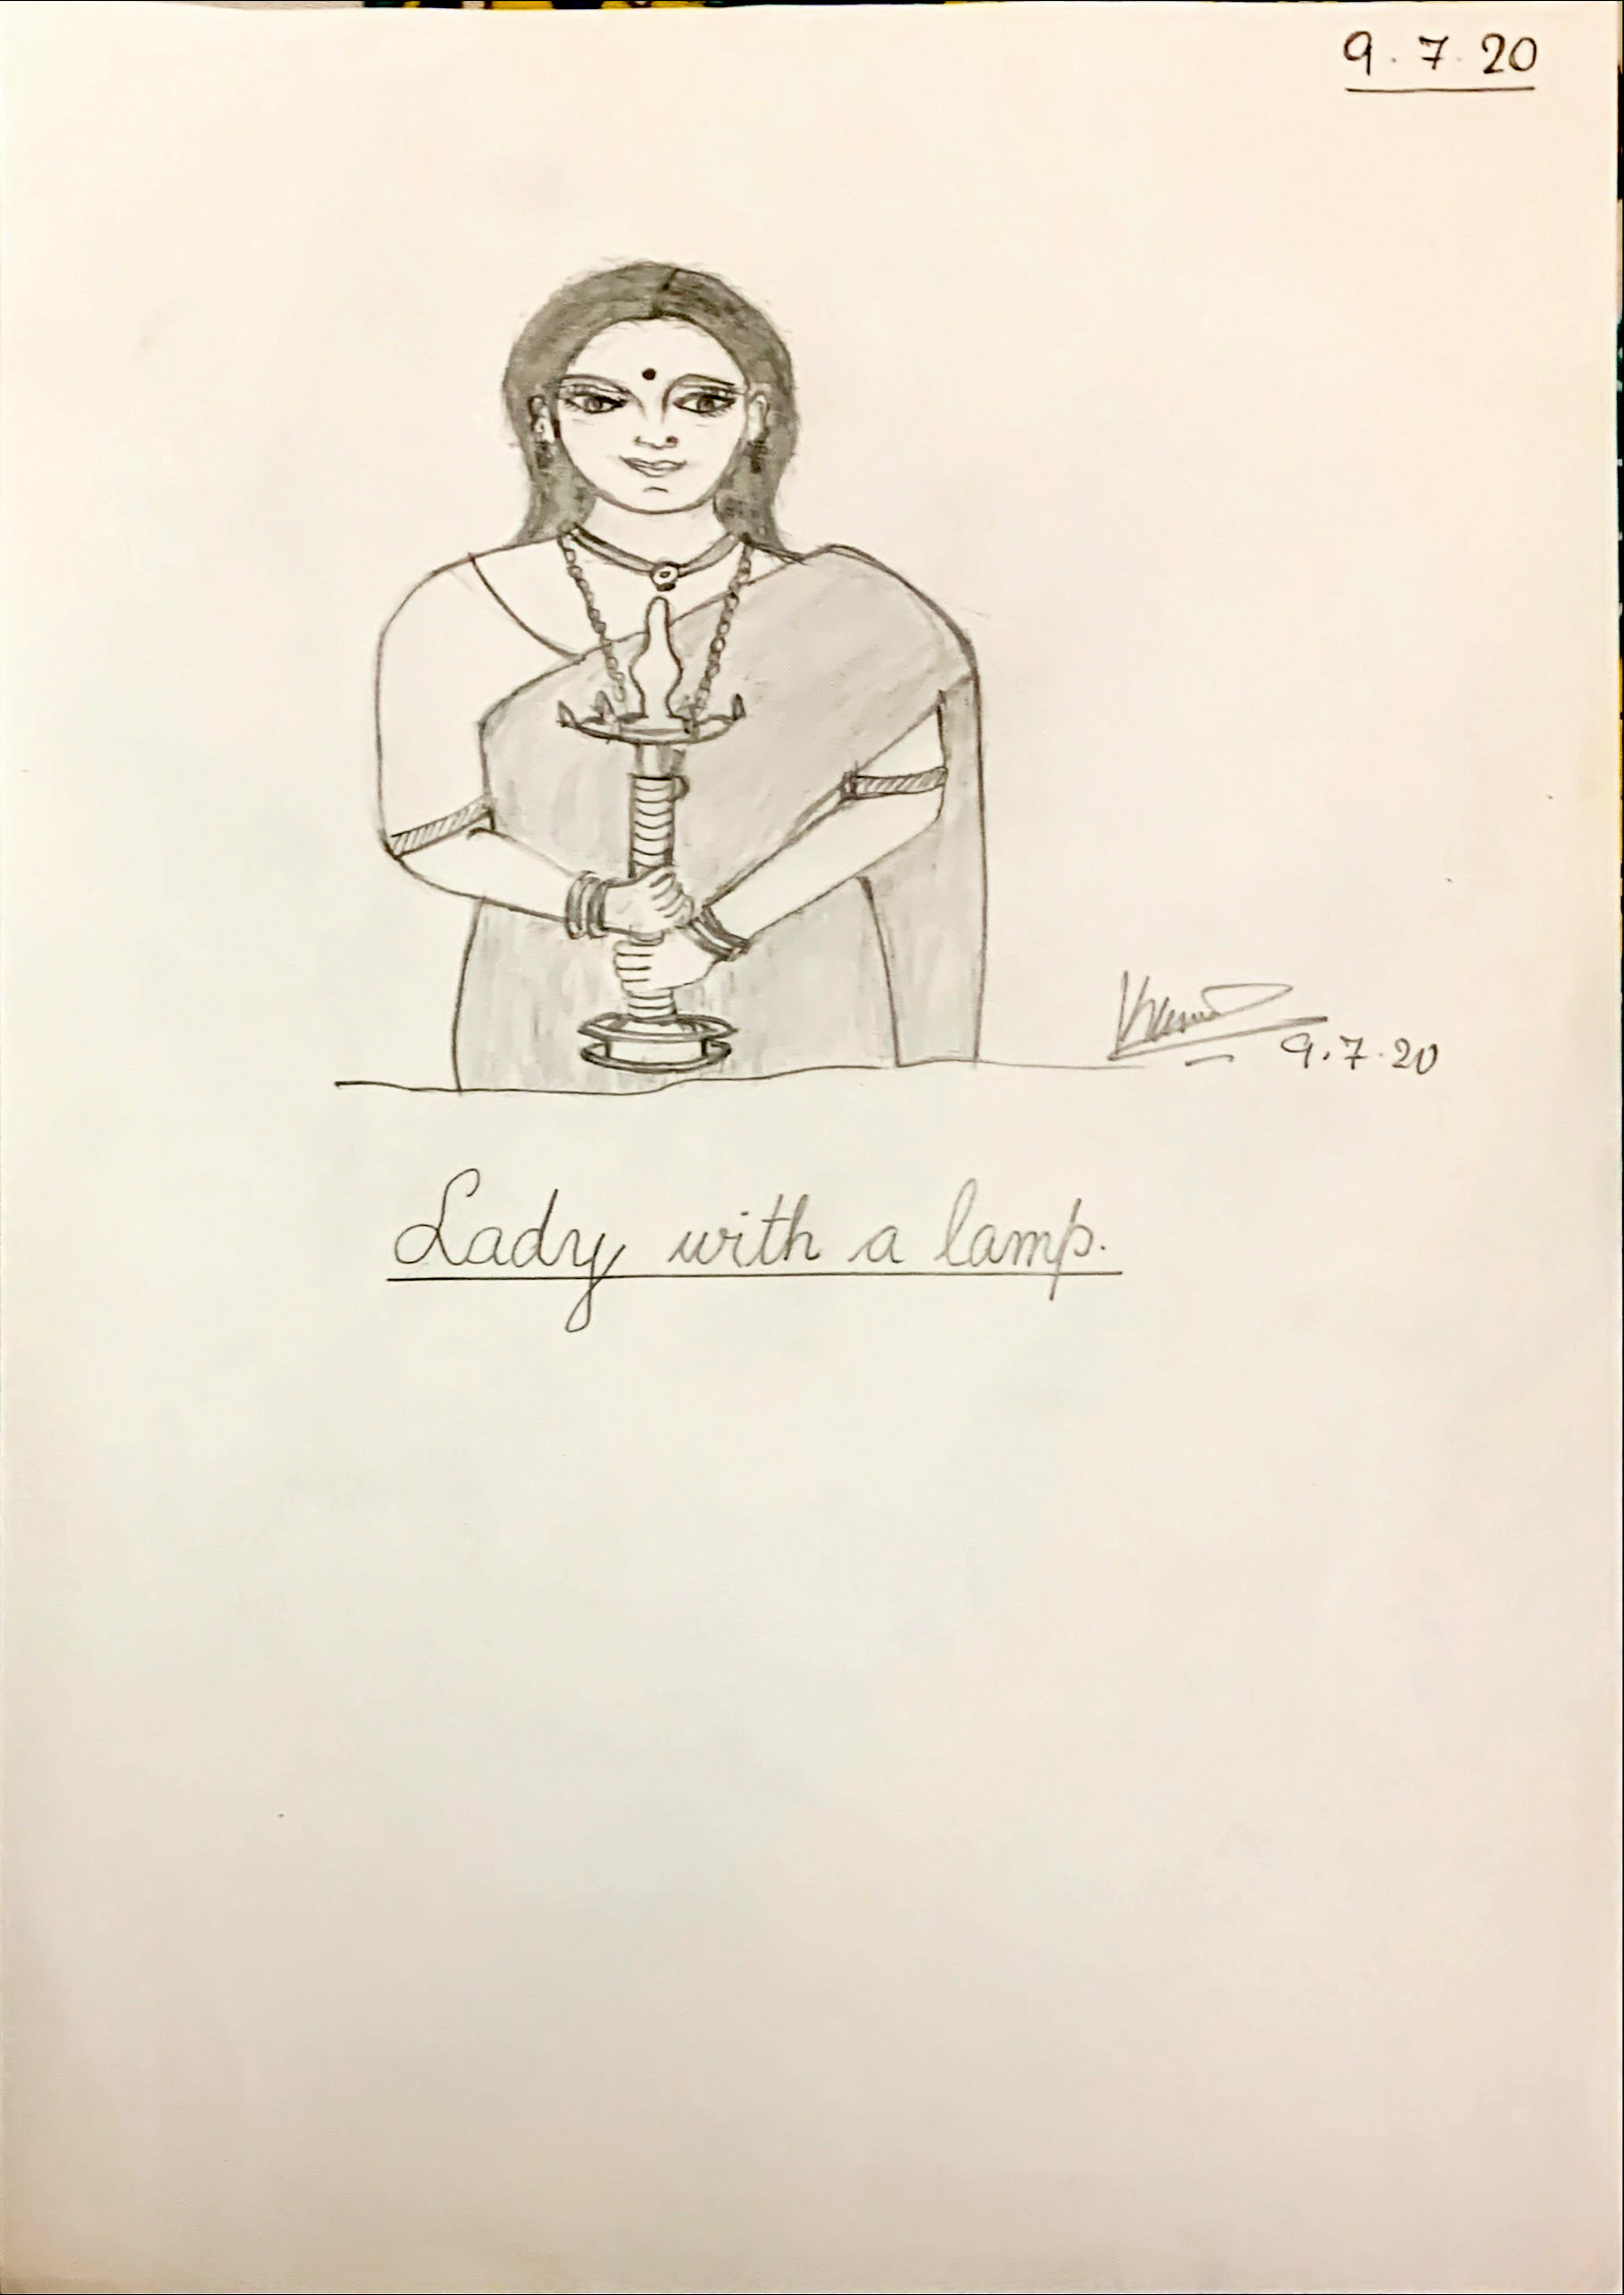 9.7.20
9.7.20
Lady with a lamp.